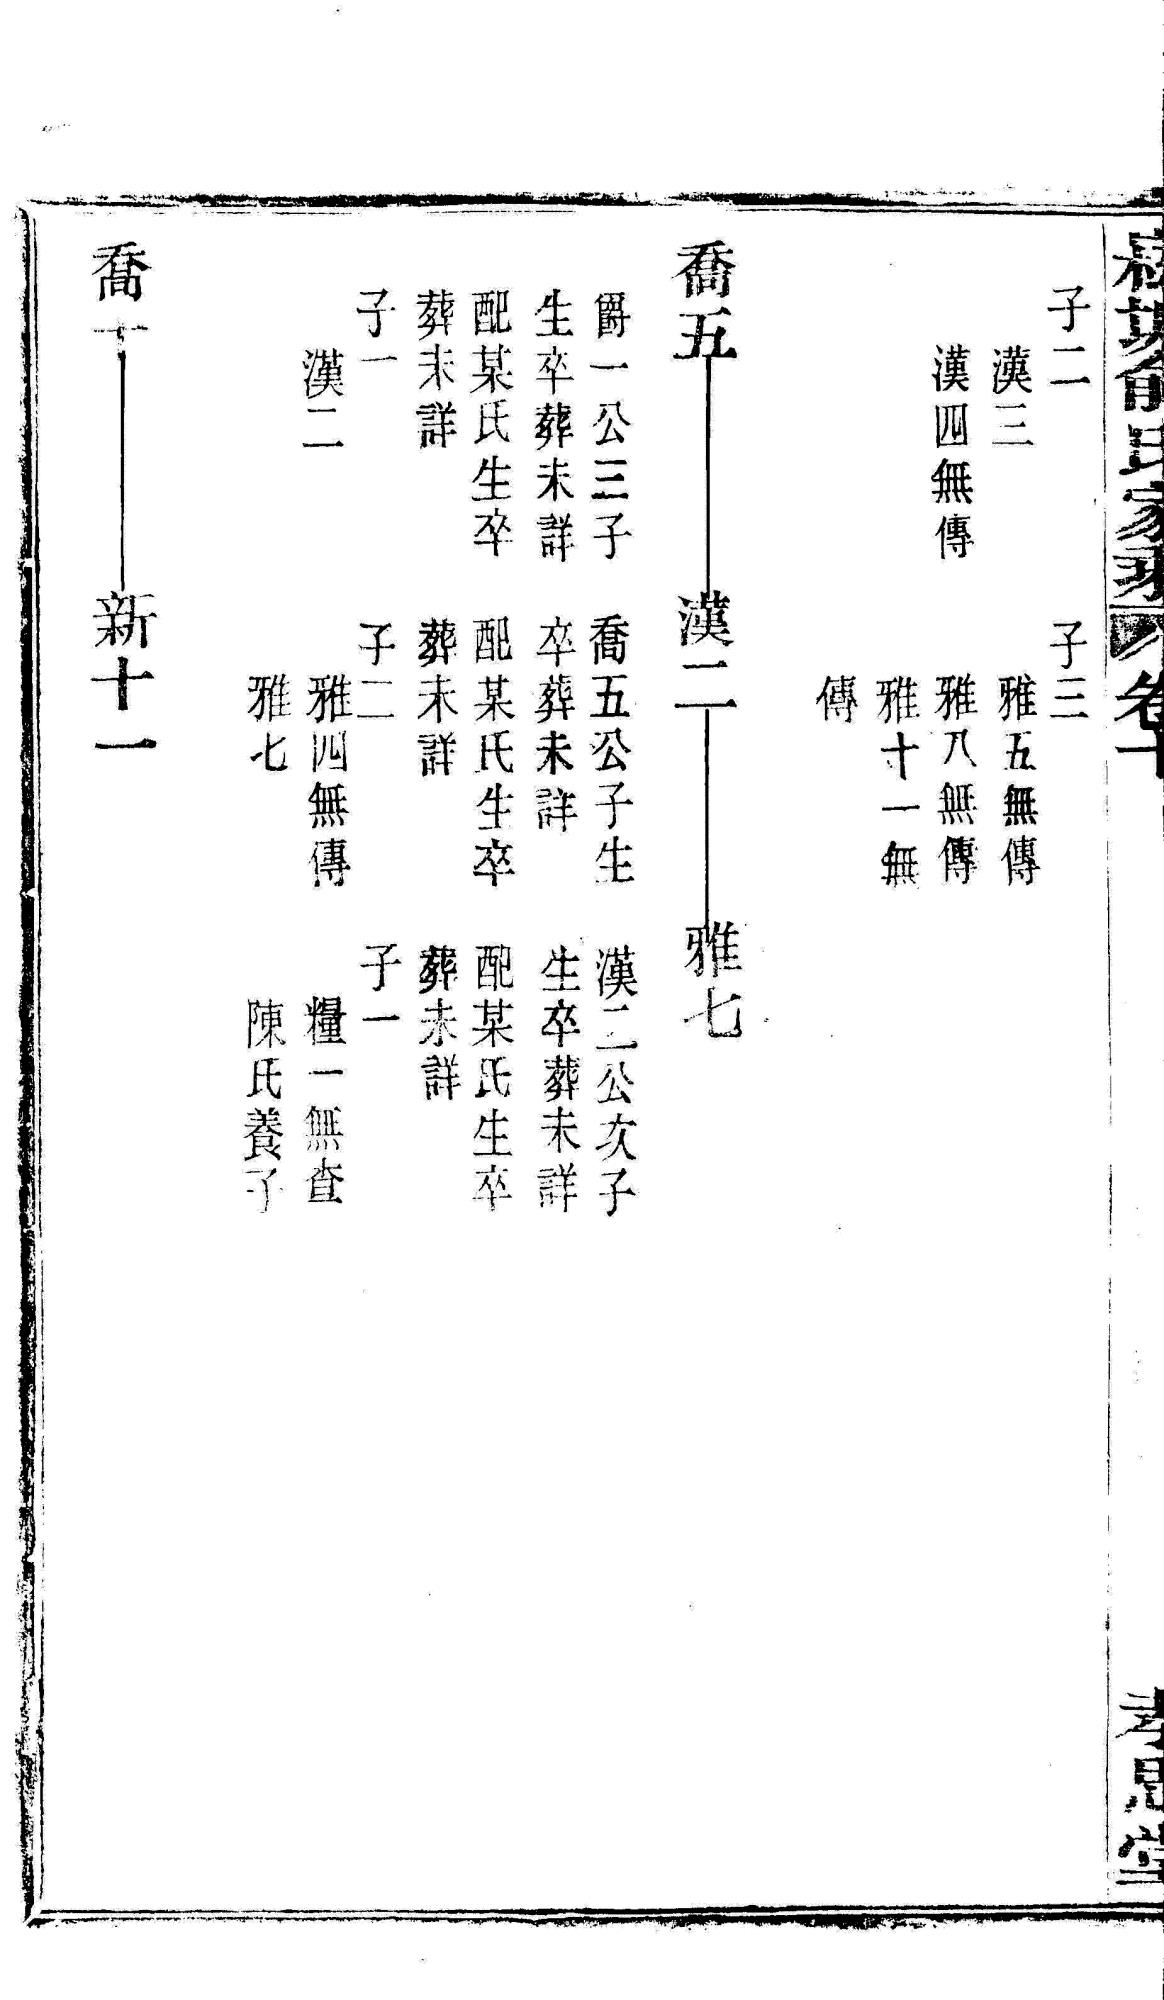 子二
漢三
漢四無傳
子三
雅五無傳
雅八無傳
雅十一無
傳
喬五
漢二
雅七
爵一公三子
生卒葬未詳
配某氏生卒
葬未詳
子一
漢二
喬五公子生
卒葬未詳
配某氏生卒
葬未詳
子二
雅四無傳
雅七
漢二公次子
生卒葬未詳
配某氏生卒
葬未詳
子一
糧一無查
陳氏養子
喬十
新十一
氏家乘
卷十
孝思堂